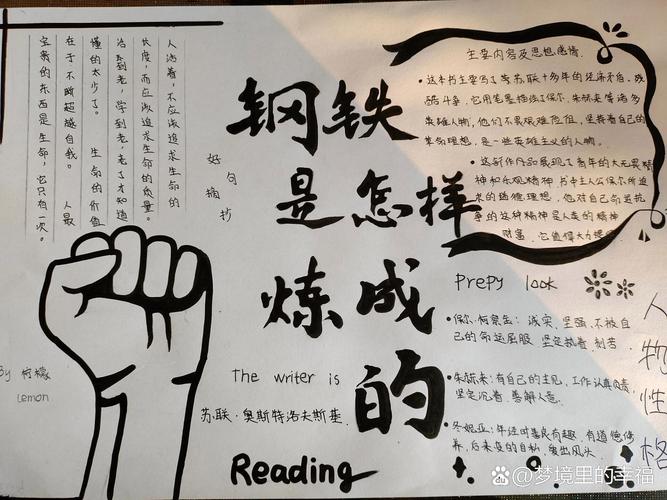 人活着，不应该追求生命的
长度，而应该追求生命的质量。
活到老，学到老，老了才知道
懂的太少了。 生命的价值
在于不断超越自我。 人最
宝贵的东西是生命，它只有一次。
好句摘抄
钢铁
是怎样
炼成
的
主要内容及思想感情
•这本书主要写了苏联十多年的
酷斗争，它用笔墨描绘了保尔、朱赫来等诸多
英雄人物，他们不畏艰难危阻，坚持着自己的
革命理想，是一些英雄主义的人物。
•这部作品展现了青年的大无畏精
神和乐观精神，书中主人公保尔所追
求的道德理想，他对自己命运抗
争的这种精神是人类的精神
财富，它值得大力提
Prepy look
•保尔·柯察金：诚实，坚强，不被自
己的命运屈服 坚定执着，刻苦
•朱赫来：有自己的主见，工作认真负责，
坚定沉着，善解人意。
•冬妮亚：年轻时善良有趣，有道德修
养，后来变的自私，爱出风头。
人物性格
By 柠檬
Lemon
The writer is
苏联·奥斯特洛夫斯基
Reading
@梦境里的幸福